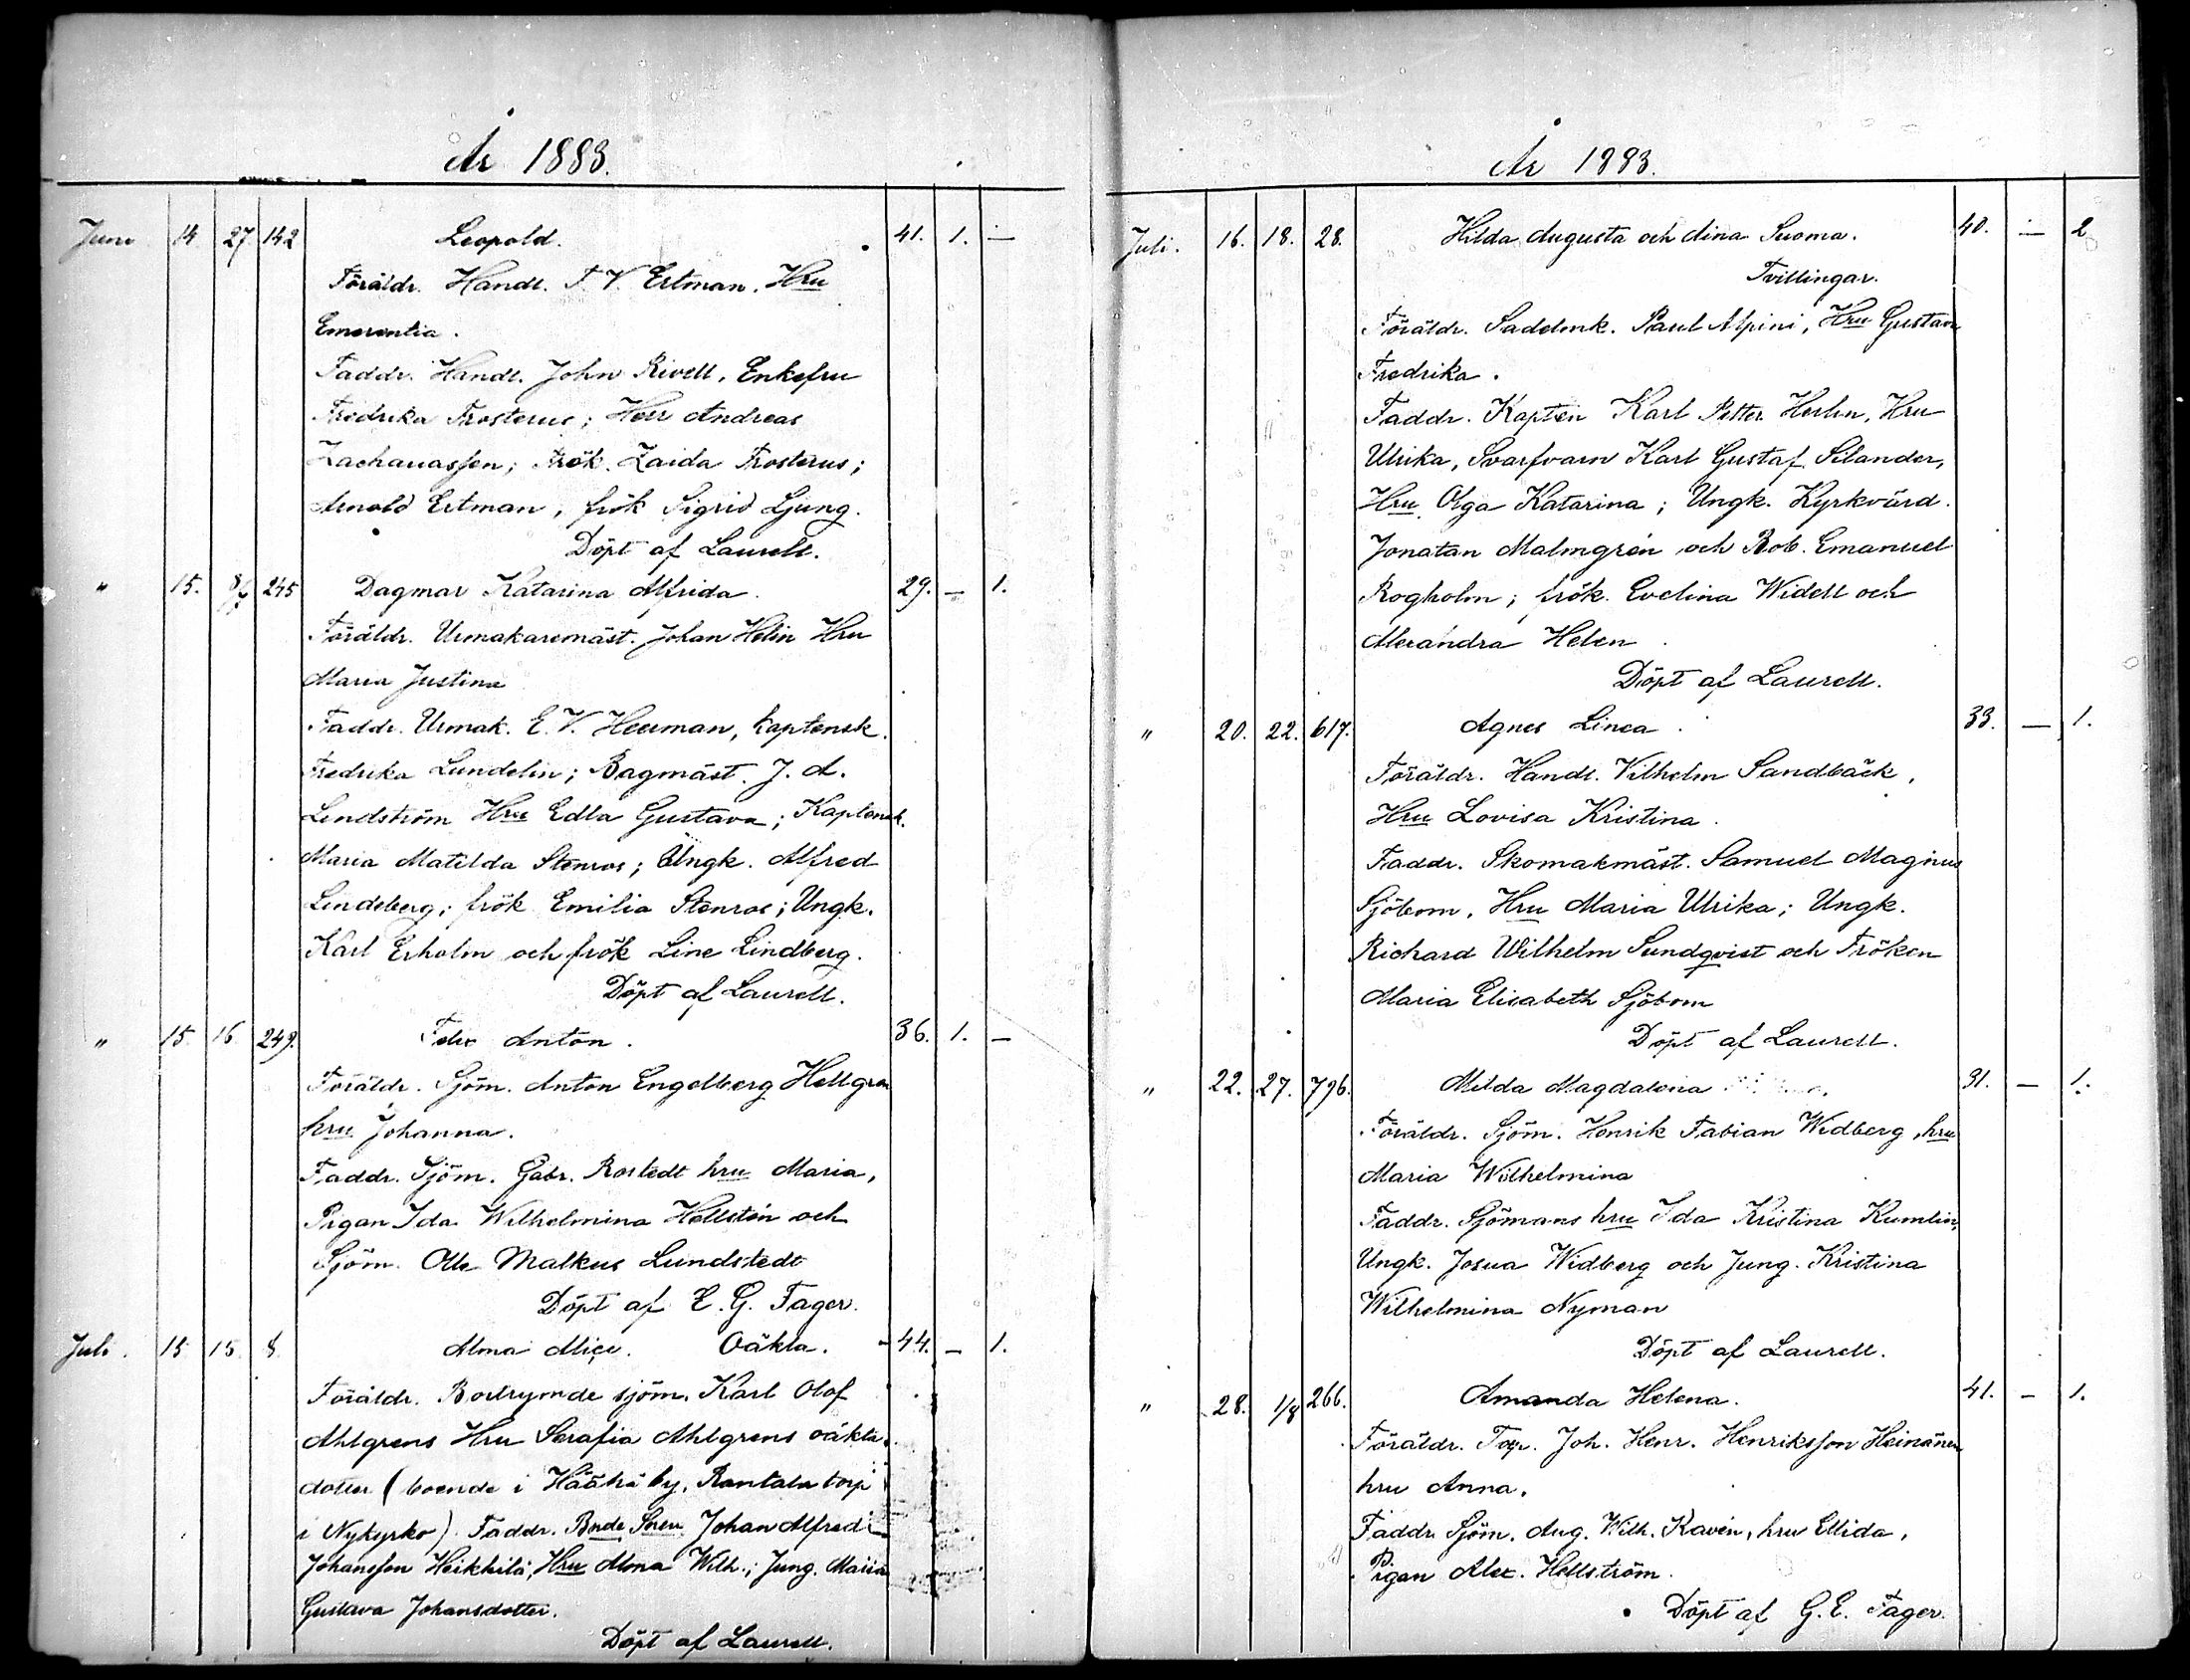 År 1883.
Juni 14. 27. 142 Leopold. 41. 1. —
Föräldr. Handl. F. V. Ertman. Hru
Emerentia.
Faddr. Handl. John Rivell, Enkefru
Fredrika Frosterus; Herr Andreas
Zachariassen; Frök. Zaida Frosterus;
Arnold Ertman, frök Sigrid Ljung.
Döpt af Laurell.
" 15. 8/7 245 Dagmar Katarina Alfrida. 29. — 1.
Föräldr. Urmakaremäst. Johan Helin Hru
Maria Justina
Faddr. Urmak. E. V. Heurman, Kaptensk.
Fredrika Lundelin; Bagmäst. J. A.
Lindström Hru Edla Gustava; Kaptensk.
Maria Matilda Stenros; Ungk. Alfred
Lindeberg; frök Emilia Stenros; Ungk.
Karl Erholm och frök Line Lindberg.
Döpt af Laurell.
" 15. 16. 249. Felix Anton. 36. 1. —
Föräldr. Sjöm. Anton Engelberg Hellgren
hru Johanna.
Faddr. Sjöm. Gabr. Rostedt hru Maria,
Pigan Ida Wilhelmina Hellstén och
Sjöm. Otto Malkus Lundstedt
Döpt af E. G. Fager.
Juli. 15 15. 8. Alma Alice. Oäkta. 44. — 1.
Föräldr. Bortrymde sjöm. Karl Olof
Ahlgrens Hru Serafia Ahlgrens oäkta
dotter (boende i Häähä by, Rantala torp
i Nykyrko). Faddr. Bnde Sonen Johan Alfred
Johansson Heikkilä, Hru Alma Wilh.; Jung. Maria
Gustava Johansdotter.
Döpt af Laurell.
År 1883.
Juli. 16. 18. 28. Hilda Augusta och Aina Suoma. 40. — 2
Tvillingar.
Föräldr. Sadelmk. Paul Alpini, Hru Gustava
Fredrika.
Faddr. Kapten Karl Petter Herlin, Hru
Ulrika, Svarfvarn Karl Gustaf Silander,
Hru Olga Katarina; Ungk. Kyrkvärd.
Jonatan Malmgrén och Rob. Emanuel
Rogholm; frök. Evelina Widell och
Alexandra Helen
Döpt af Laurell.
" 20. 22. 617. Agnes Linea. 33. — 1.
Föräldr. Handl. Vilhelm Sandbäck,
Hru Lovisa Kristina.
Faddr. Skomakmäst. Samuel Magnus
Sjöbom, Hru Maria Ulrika; Ungk.
Richard Wilhelm Sundqvist och Fröken
Maria Elisabeth Sjöbom
Döpt af Laurell.
" 22. 27. 796. Milda Magdalena 31. — 1.
Föräldr. Sjöm. Henrik Fabian Widberg, hru
Maria Wilhelmina
Faddr. Sjömans hru Ida Kristina Kumlin,
Ungk. Josua Widberg och Jung. Kristina
Wilhelmina Nyman
Döpt af Laurell.
" 28. 1/8 266. Amanda Helena. 41. — 1.
Föräldr. Torp. Joh. Henr. Henriksson Heinänen
hru Anna.
Faddr. Sjöm. Aug. Wilh. Kavén, hru Ellida,
Pigan Alex. Hellström.
Döpt af G. E. Fager.